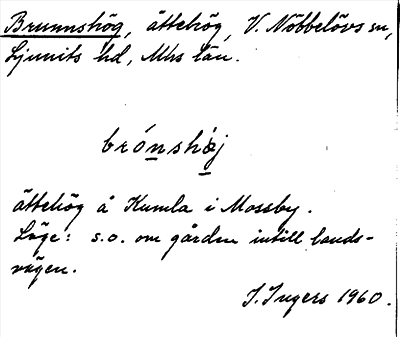 Brunnshög, ättehög, V. Nöbbelövs sn,
Ljunits hd, Mhs län.
brónshȧj
ättehög å Kumla i Mossby.
Läge: s.o. om gården intill lands-
vägen.
I. Ingers 1960.